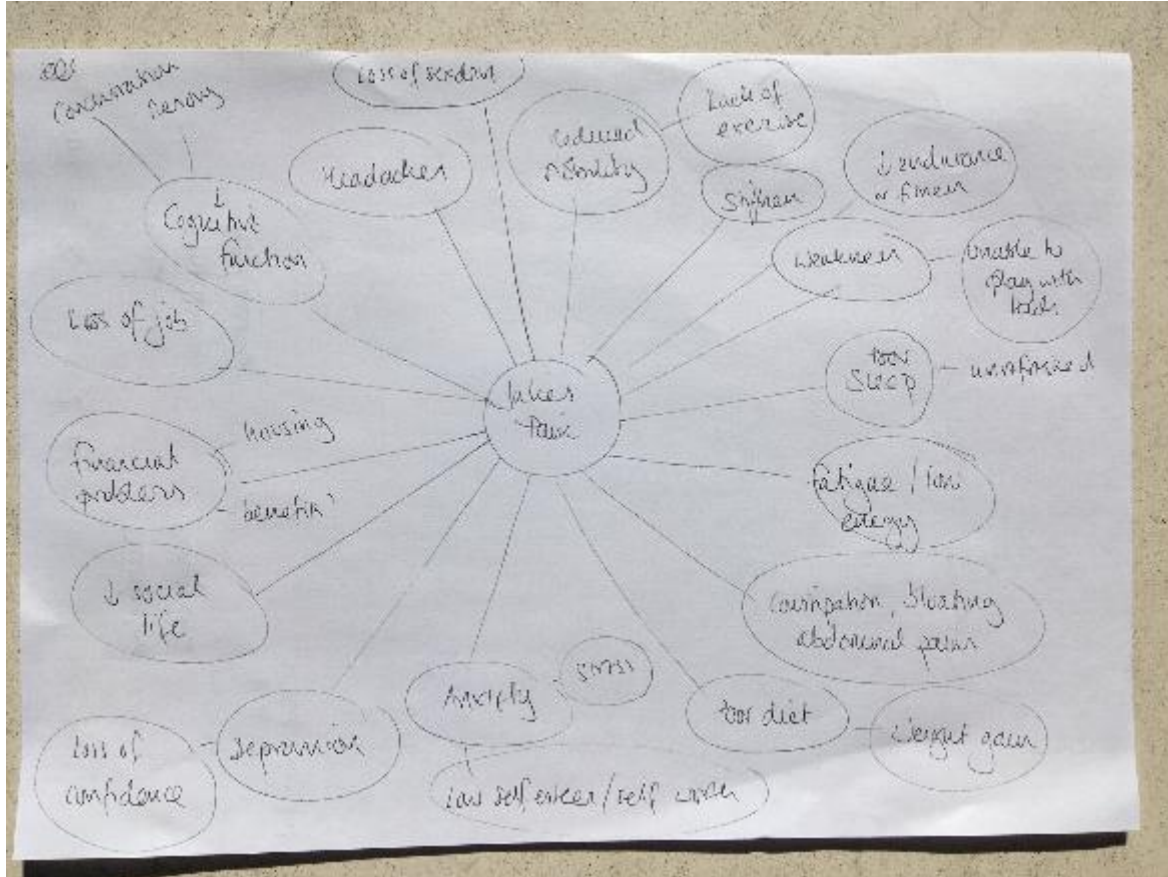 Concentration
Memory
↓
Cognitive
function
Headaches
Loss of sex drive
reduced
mobility
Lack of
exercise
Stiffness
↓ endurance
or fitness
Weakness
Unable to
play with
kids
Poor
Sleep
unrefreshed
Fatigue / low
energy
Constipation, bloating
abdominal pains
Poor diet
Weight gain
Anxiety
Stress
Low self esteem / self worth
Depression
Loss of
confidence
↓ social
life
financial
problems
housing
benefits
Loss of job
Pain